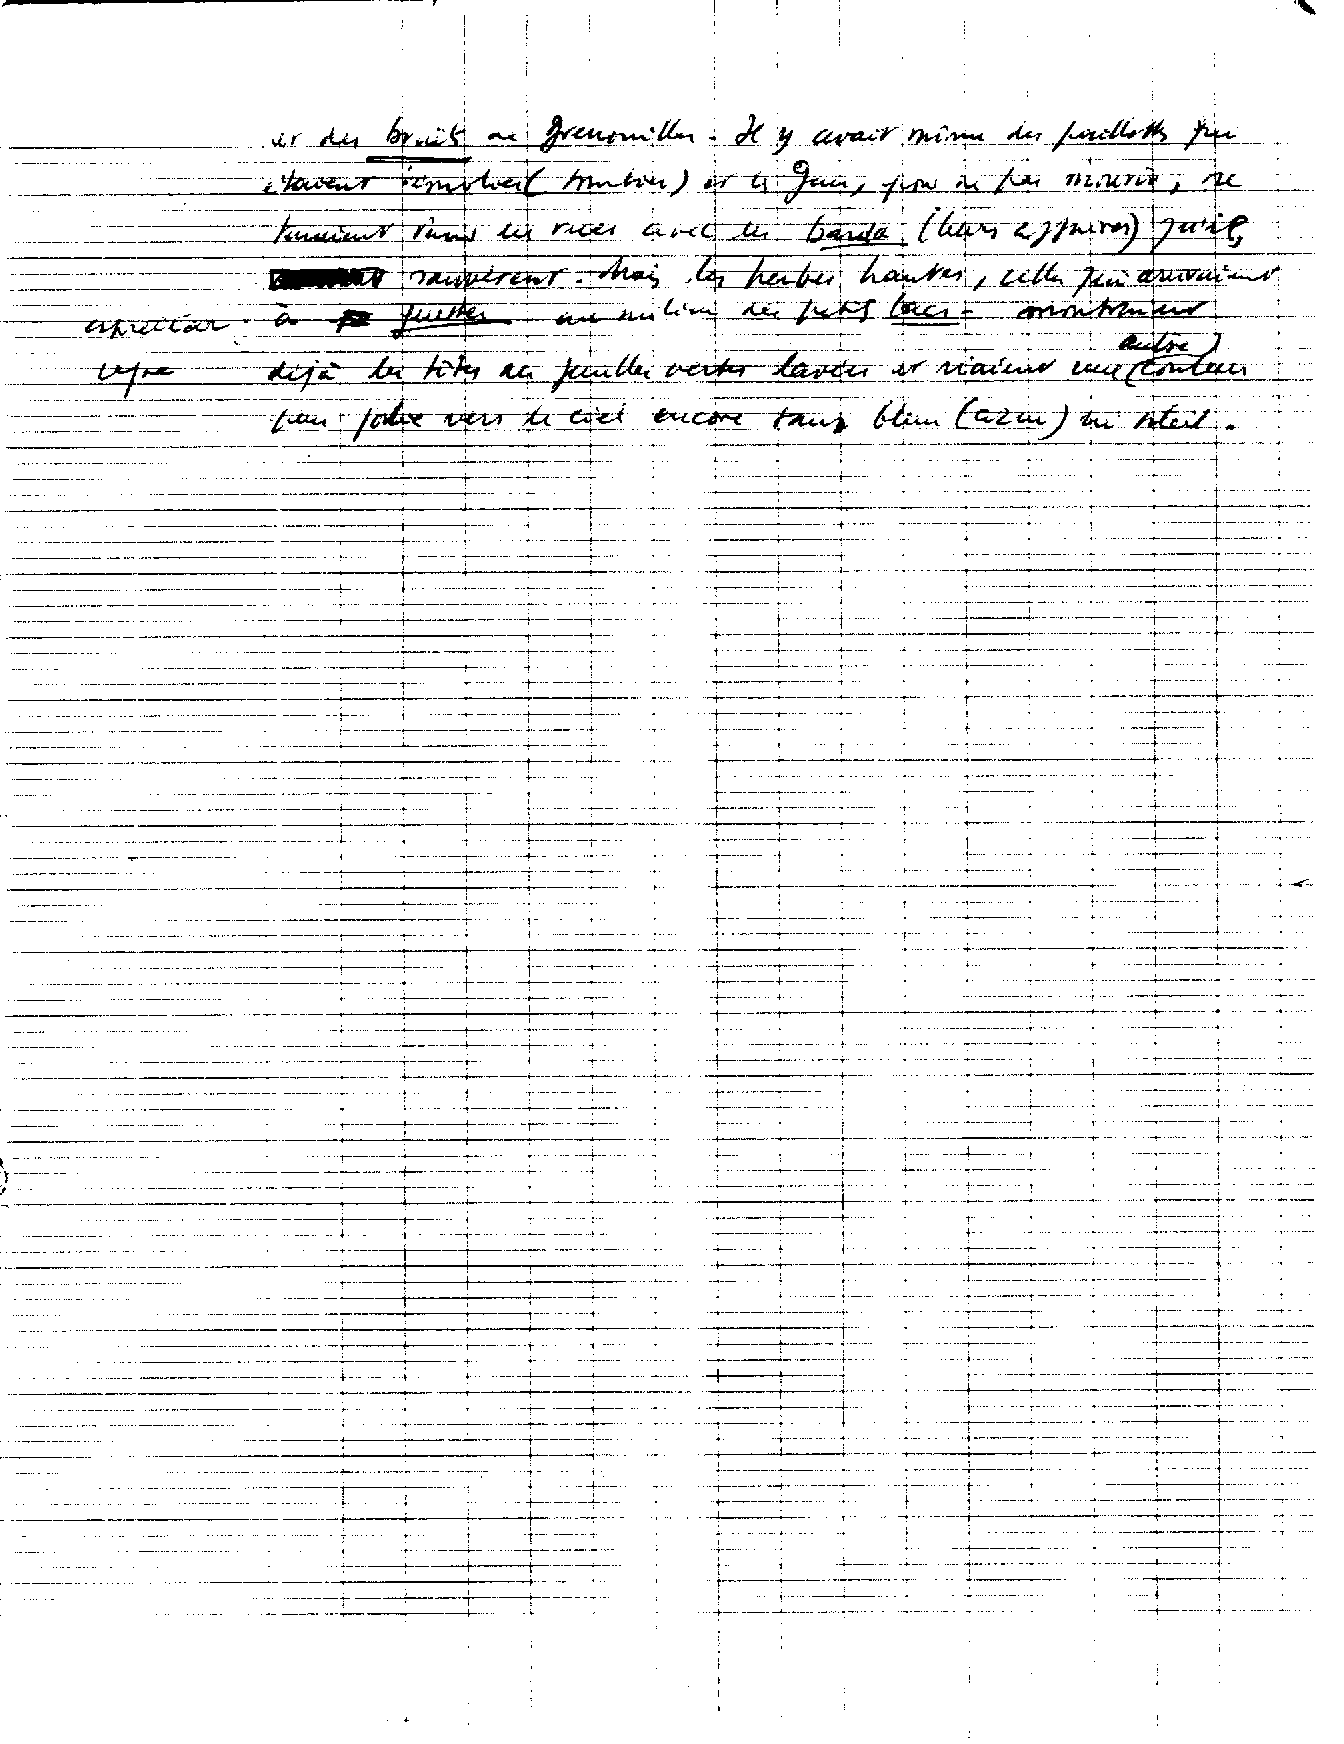 et des bruits de grenouilles. Il y avait même des paillottes qui
étaient démolies (tombées) et les gens, pour ne pas mourir, se
tenaient dans les rues avec les barda (leurs affaires) qu'ils
sauvèrent. Mais les herbes hautes, celles qui arrivaient
à au milieu des petits lacs - montraient
déjà les têtes de feuilles vertes lavées et riaient une (autre) couleur
plus jolie vers le ciel encore sans bleu (azur) ni soleil.